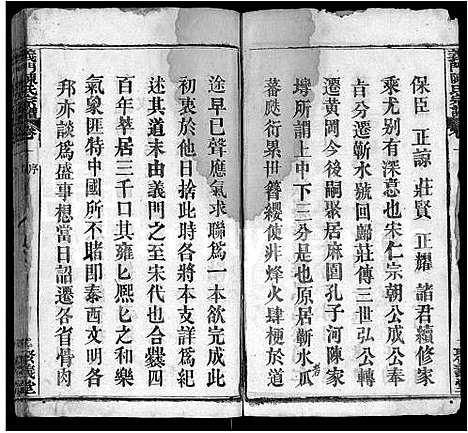 保臣 正諒 莊賢 正耀 諸君續修家
乘尤有深意也宋仁宗朝公成公奉
旨分遷蘄水號回歸莊傳三世弘公轉
遷黃岡今後嗣聚居麻園孔子河陳家
塆所謂上中下三分是也原居蘄水瓜
蕃嶯衍累世簪纓使非烽火肆梗於道
途早已聲應氣求聯為一本欲完成此
初衷於他日此時各將本支詳為紀
述其道未由義門之至宋代也合爨四
百年羣居三千口其雍匕熙匕之和樂
氣象匪特中國所不睹即泰西文明之
邦亦談為盛事想當日詔遷各省骨肉
義門陳氏宗譜 卷一 序
聚義堂